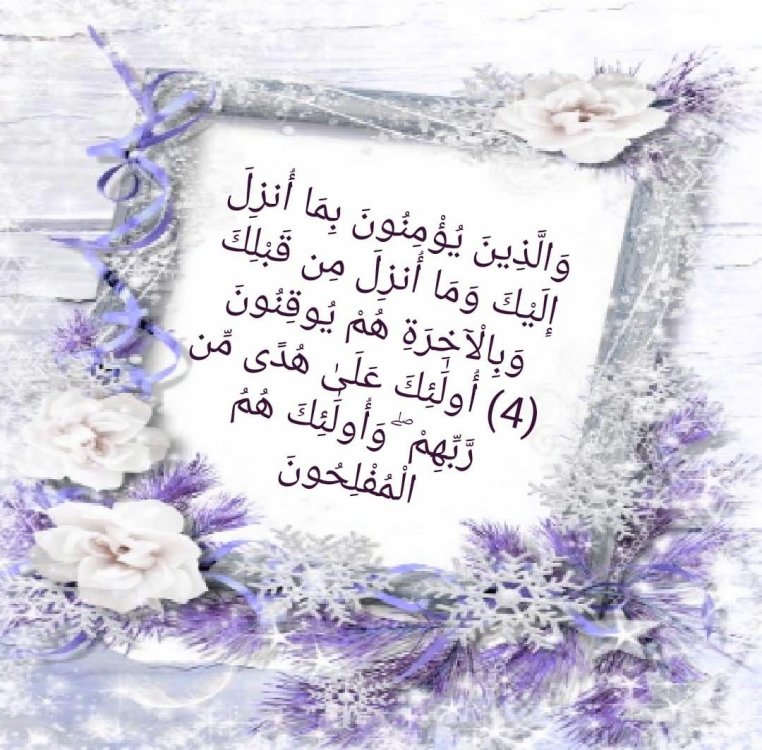 وَالَّذِينَ يُؤْمِنُونَ بِمَا أُنزِلَ
إِلَيْكَ وَمَا أُنزِلَ مِن قَبْلِكَ
وَبِالْآخِرَةِ هُمْ يُوقِنُونَ
(4) أُولَٰئِكَ عَلَىٰ هُدًى مِّن
رَّبِّهِمْ ۖ وَأُولَٰئِكَ هُمُ
الْمُفْلِحُونَ